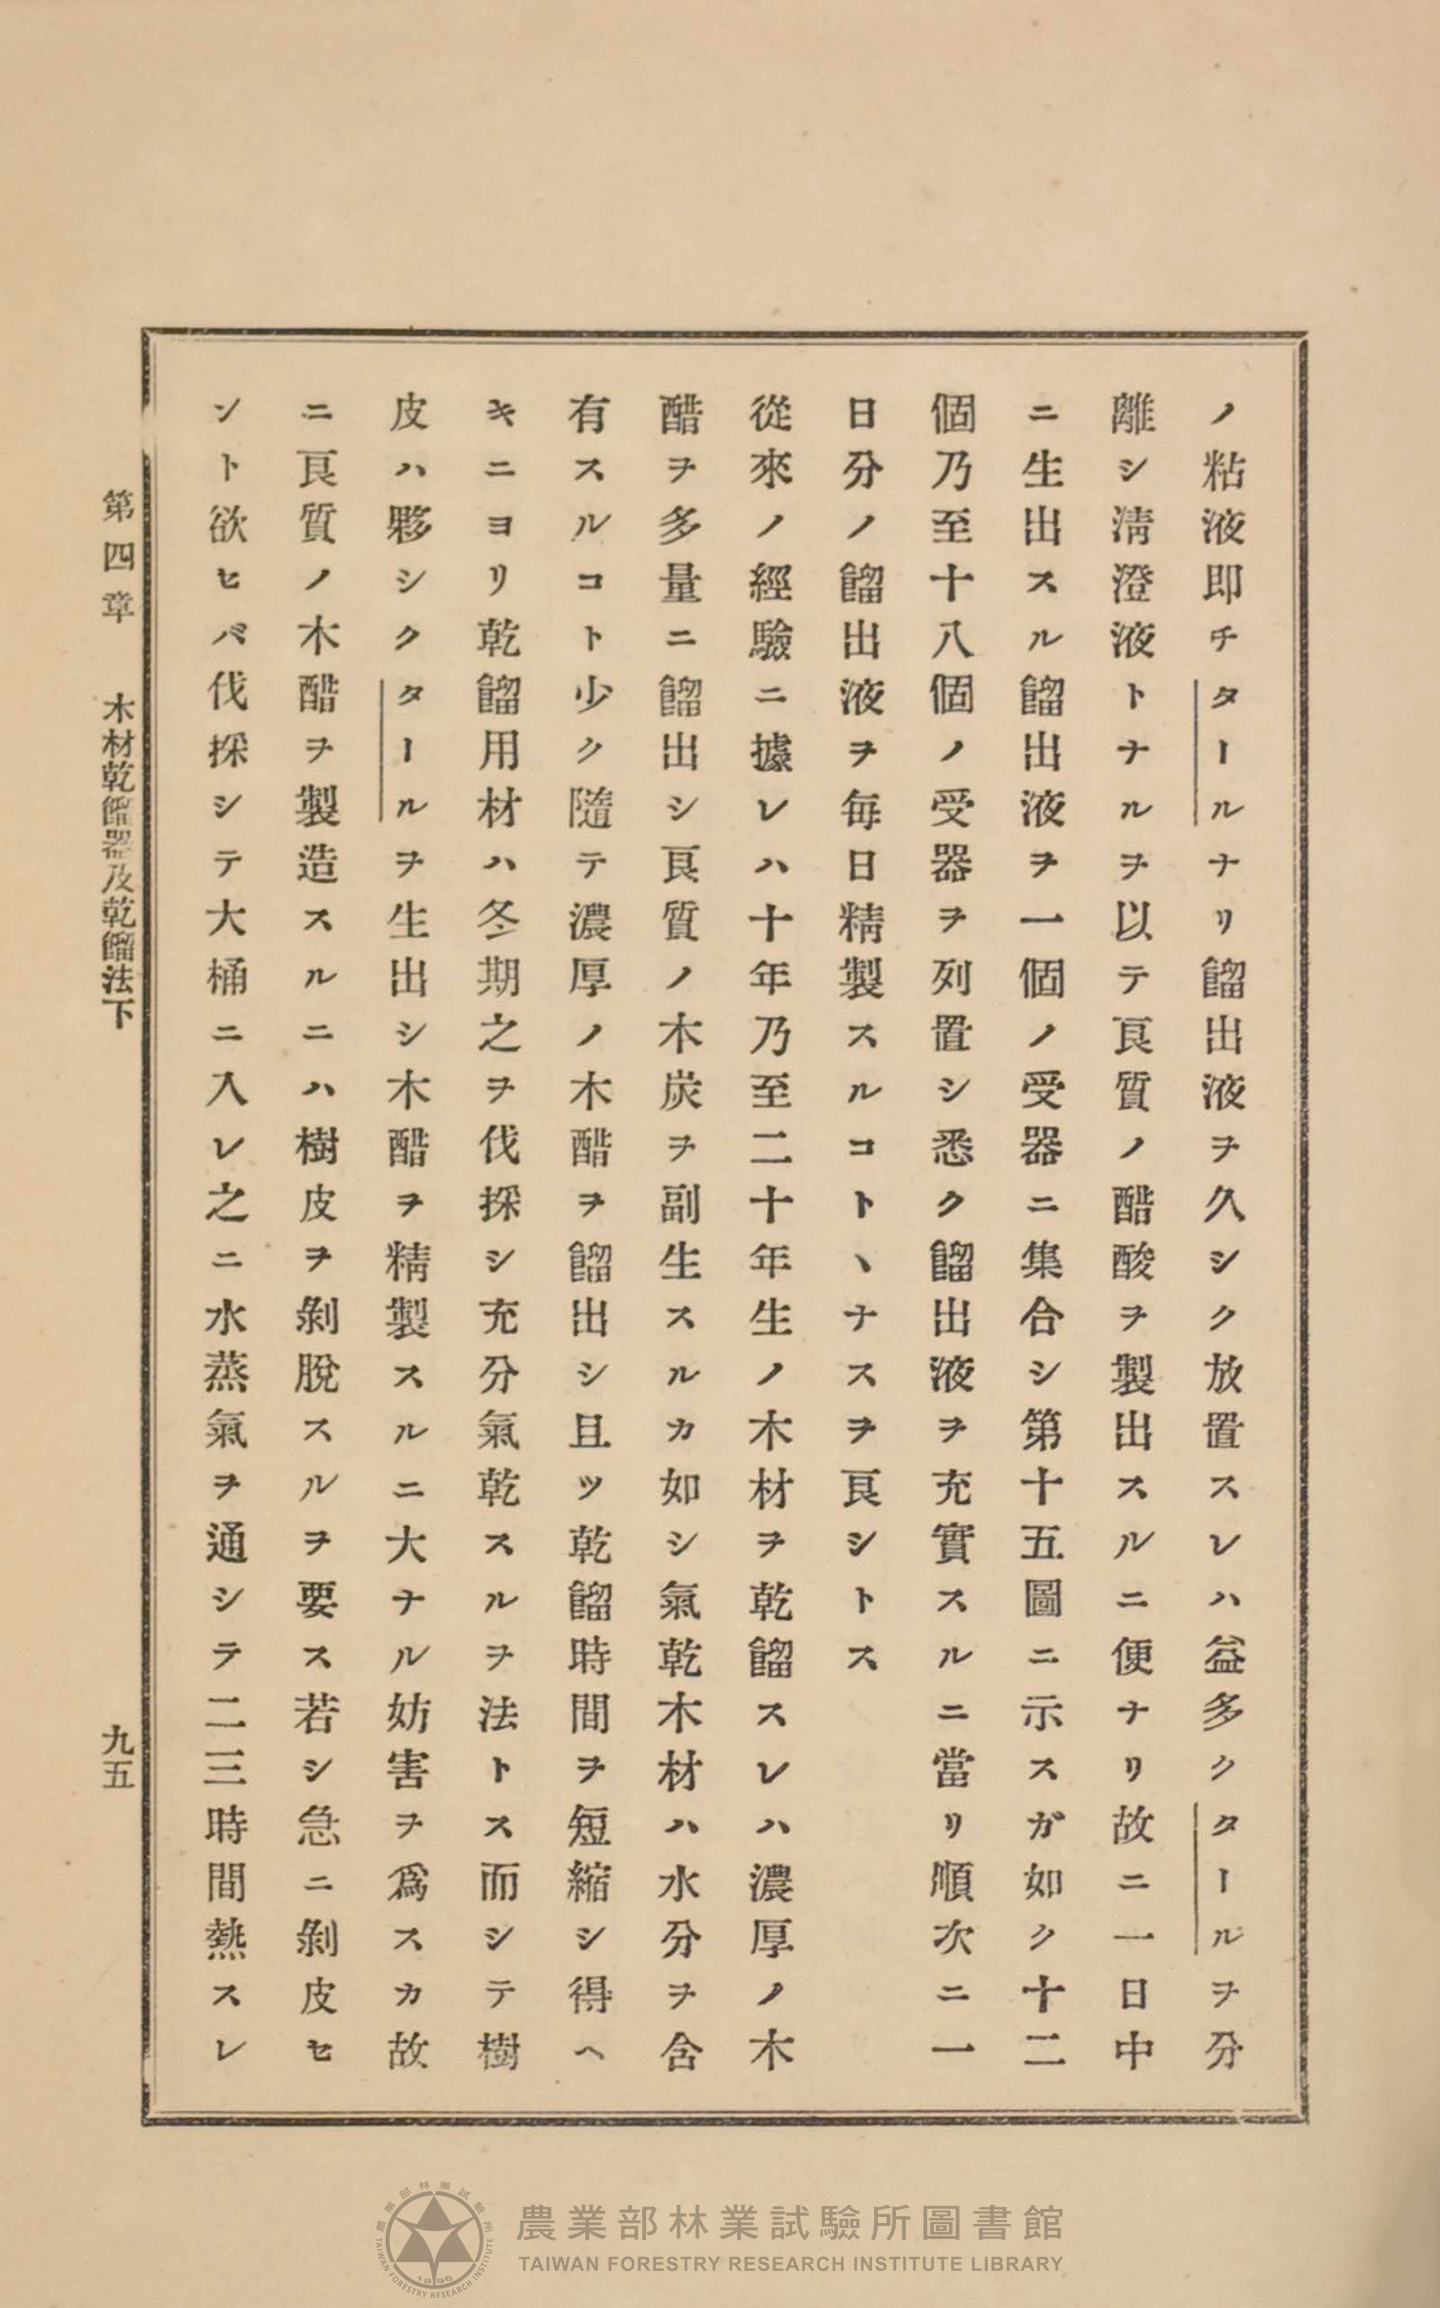 ノ粘液即チタールナリ餾出液ヲ久シク放置スレハ益多クタールヲ分
離シ淸澄液トナルヲ以テ良質ノ醋酸ヲ製出スルニ便ナリ故ニ一日中
ニ生出スル餾出液ヲ一個ノ受器ニ集合シ第十五圖ニ示スガ如ク十二
個乃至十八個ノ受器ヲ列置シ悉ク餾出液ヲ充實スルニ當リ順次ニ一
日分ノ餾出液ヲ每日精製スルコトヽナスヲ良シトス
從來ノ經驗ニ據レハ十年乃至二十年生ノ木材ヲ乾餾スレハ濃厚ノ木
醋ヲ多量ニ餾出シ良質ノ木炭ヲ副生スルカ如シ氣乾木材ハ水分ヲ含
有スルコト少ク隨テ濃厚ノ木醋ヲ餾出シ且ツ乾餾時間ヲ短縮シ得ヘ
キニヨリ乾餾用材ハ冬期之ヲ伐採シ充分氣乾スルヲ法トス而シテ樹
皮ハ夥シクタールヲ生出シ木醋ヲ精製スルニ大ナル妨害ヲ爲スカ故
ニ良質ノ木醋ヲ製造スルニハ樹皮ヲ剝脫スルヲ要ス若シ急ニ剝皮セ
ント欲セバ伐採シテ大桶ニ入レ之ニ水蒸氣ヲ通シテ二三時間熱スレ
第四章 木材乾餾器及乾餾法下
九五
農業部林業試驗所圖書館
TAIWAN FORESTRY RESEARCH INSTITUTE LIBRARY
農業部林業試驗所
TAIWAN FORESTRY RESEARCH INSTITUTE
1896